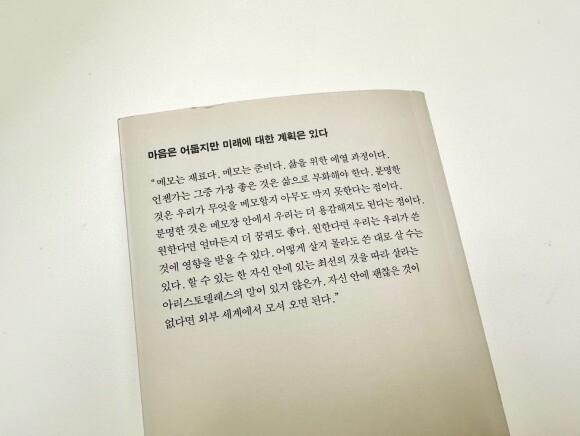 마음은 어둡지만 미래에 대한 계획은 있다
“메모는 재료다. 메모는 준비다. 삶을 위한 예열 과정이다.
언젠가는 그중 가장 좋은 것은 삶으로 부화해야 한다. 분명한
것은 우리가 무엇을 메모할지 아무도 막지 못한다는 점이다.
분명한 것은 메모장 안에서 우리는 더 용감해져도 된다는 점이다.
원한다면 얼마든지 더 꿈꿔도 좋다. 원한다면 우리는 우리가 쓴
것에 영향을 받을 수 있다. 어떻게 살지 몰라도 쓴 대로 살 수는
있다. 할 수 있는 한 자신 안에 있는 최선의 것을 따라 살라는
아리스토텔레스의 말이 있지 않은가. 자신 안에 괜찮은 것이
없다면 외부 세계에서 모셔 오면 된다.”